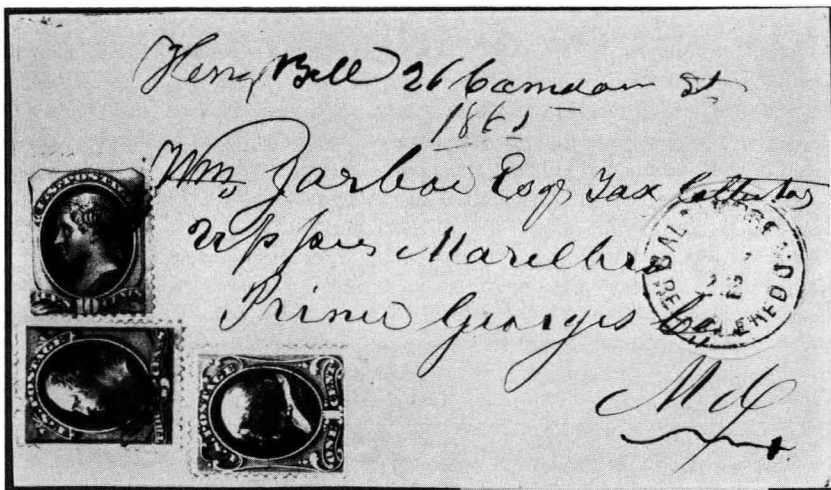 Henry Bell 26 Camden St
1865
Wm Jarboe Esqr Tax Collector
Upper Marlboro
Prince Georges Co
Md
BALTIMORE MD
REGISTERED
U.S. POSTAGE
10